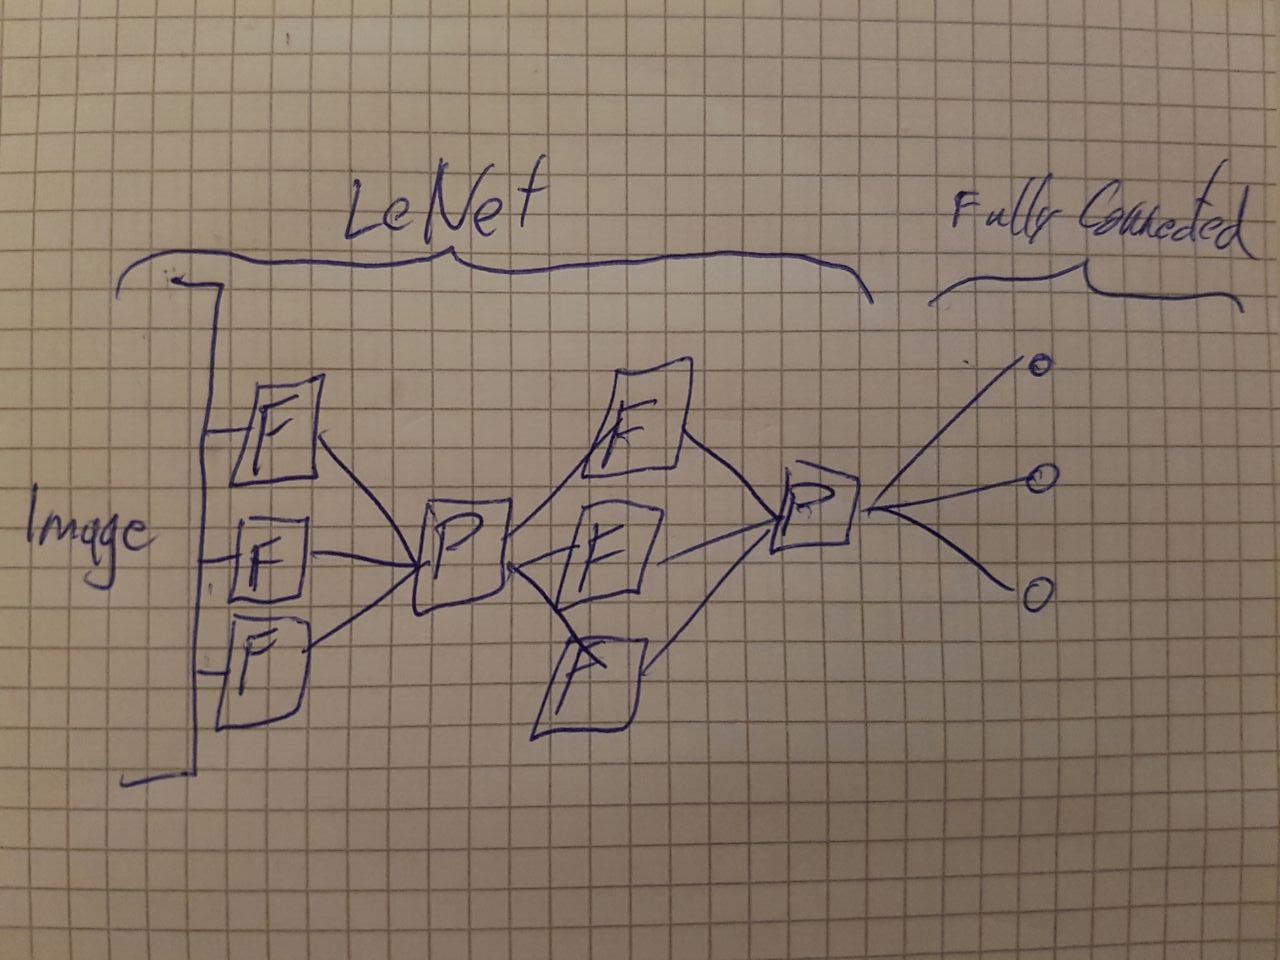 LeNet
Fully Connected
Image
F
F
F
P
F
F
F
P